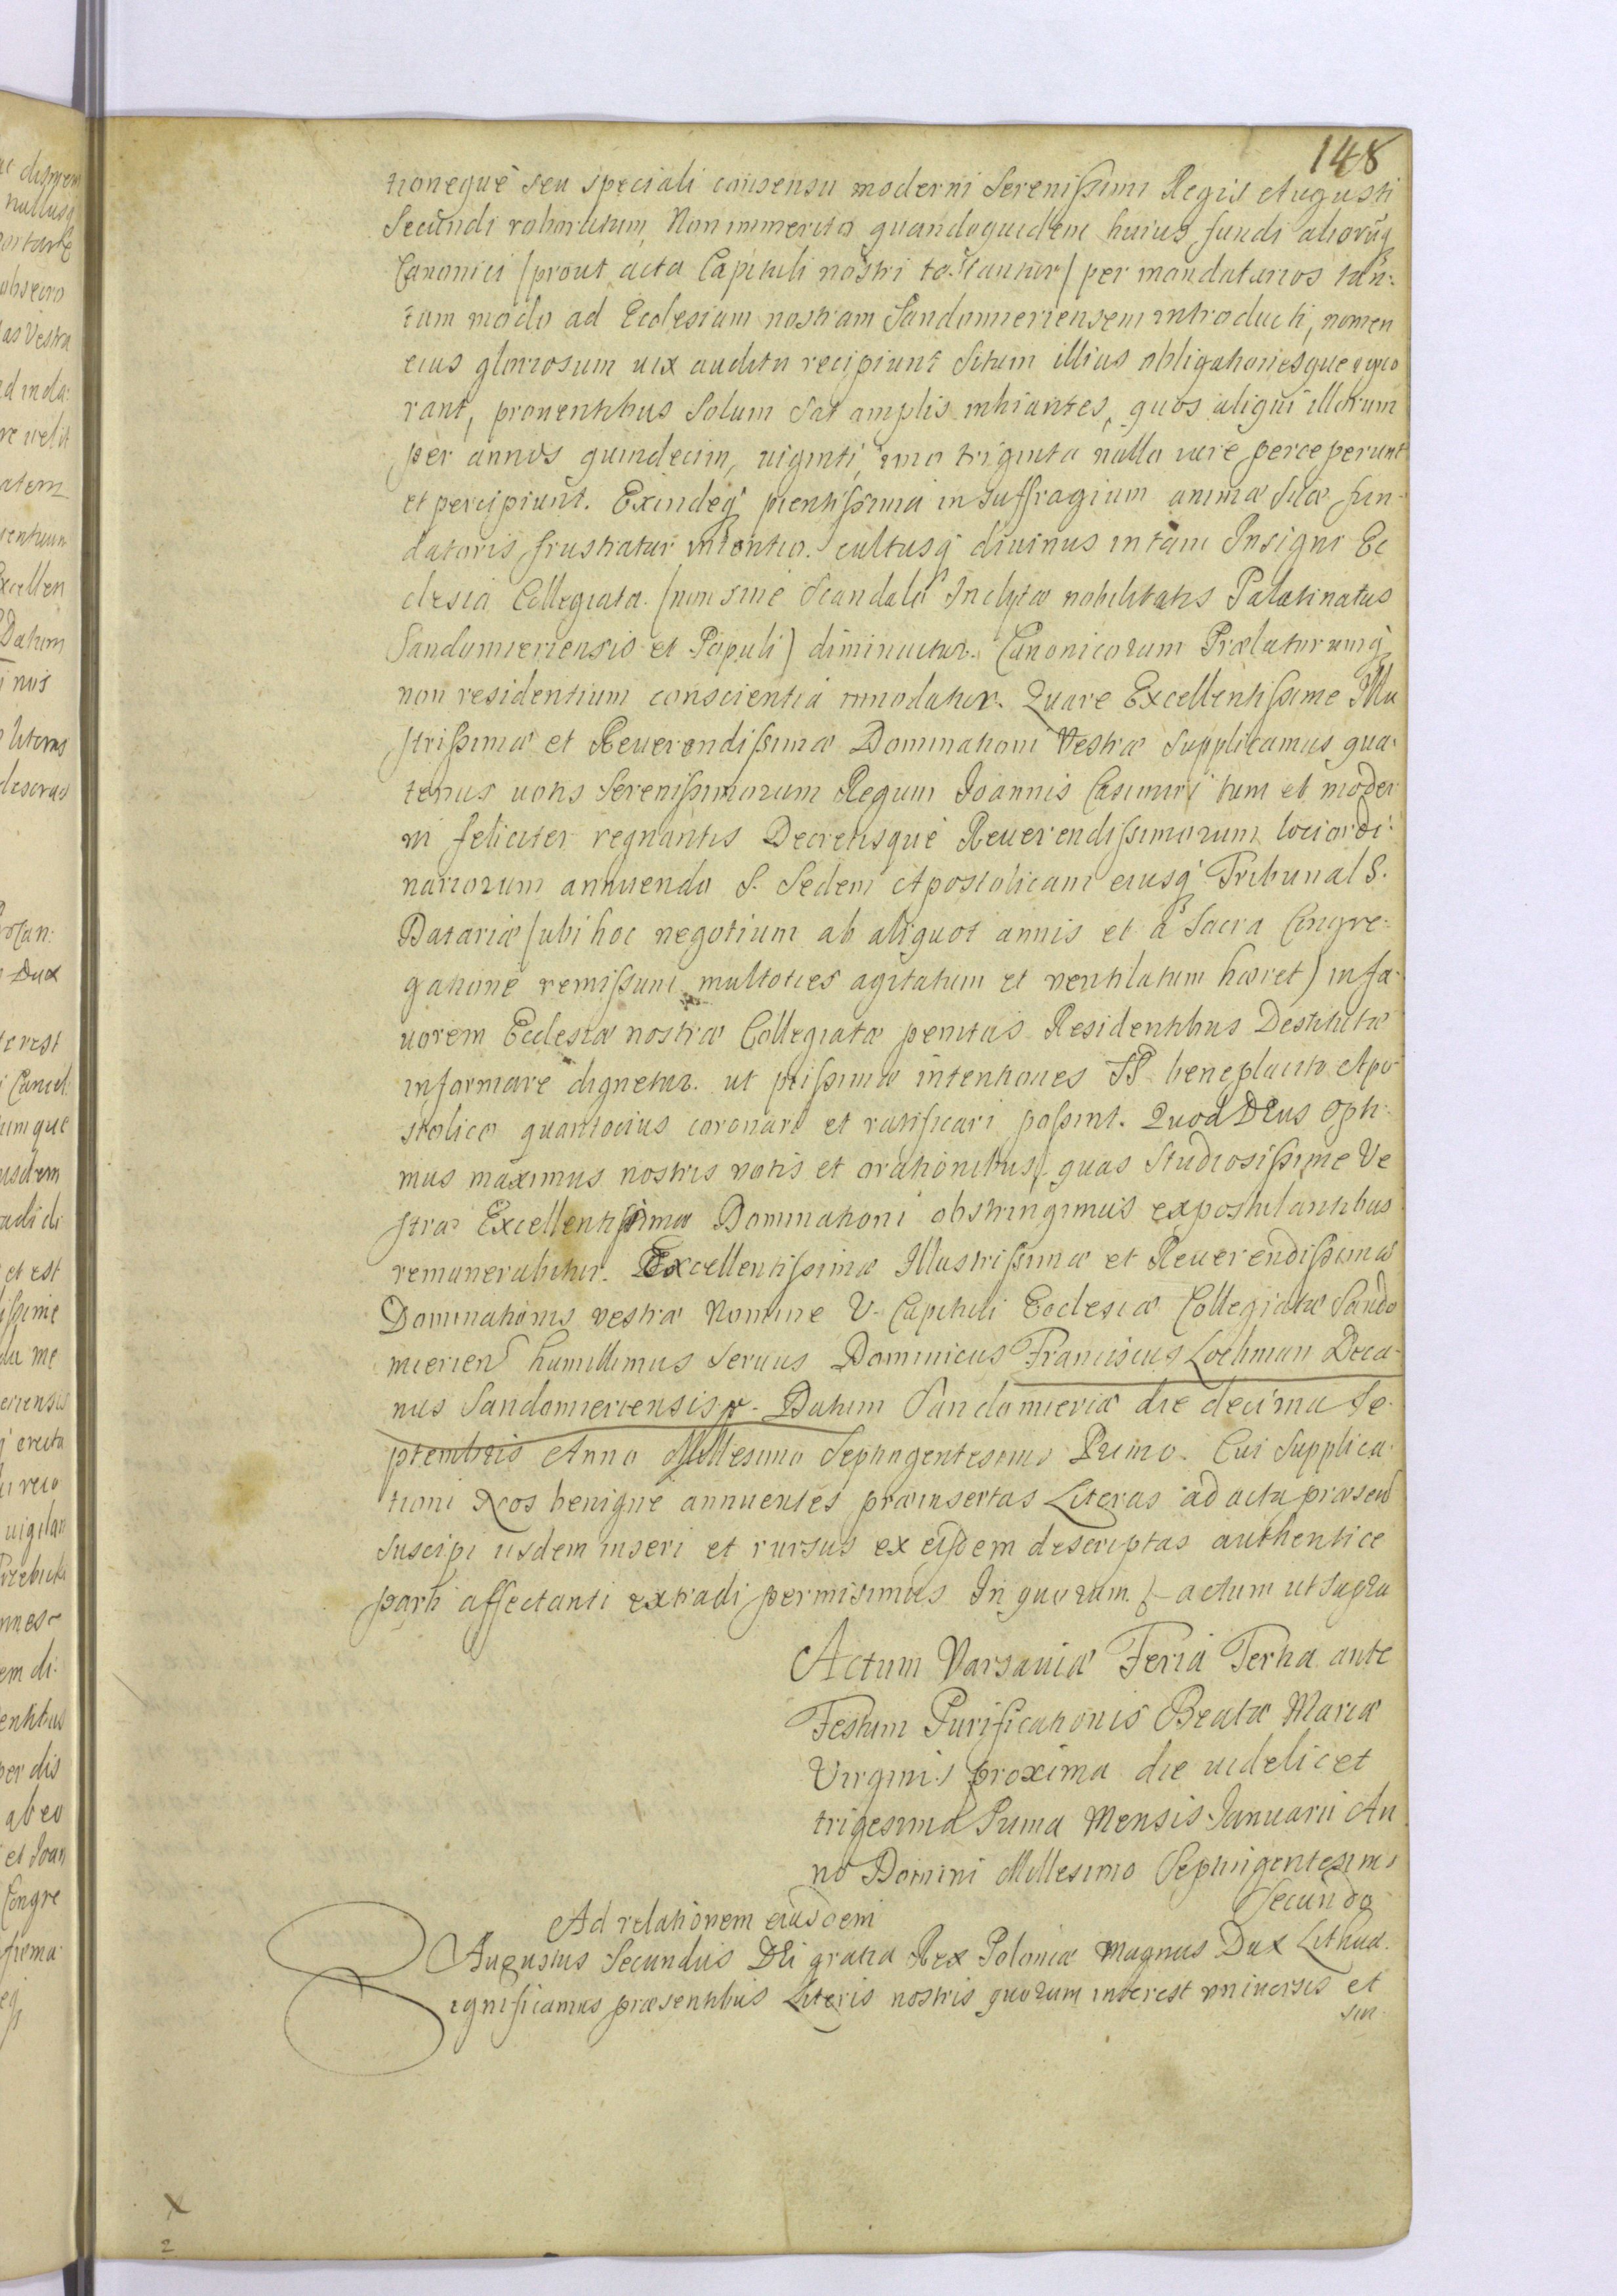 148
tioneque seu speciali consensu moderni Serenissimi Regis Augusti
Secundi roboratum, Non immerito quandoquidem huius fundi aliorūq
Canonici /prout acta Capituli nostri testantur/ per mandatarios tan-
tum modo ad Ecclesiam nostram Sandomieriensem introducti, nomen
eius gloriosum uix auditu recipiunt Situm illius obligationesque igno
rant, prouentibus Solum Sat amplis inhiantes, quos aliqui illorum
per annos quindecim, uiginti, imo triginta nullo iure perceperunt
et percipiunt. Exindeq pientissima in suffragium animæ suæ fun-
datoris frustratur intentio. cultusq diuinus in tam Insigni Ec
clesia Collegiata. (non sine Scandalo Inclytæ nobilitatis Palatinatus
Sandomieriensis et Populi) diminuitur. Canonicorum Prælatorumq
non residentium conscientia innodatur. Quare Excellentissime Illu
strissimæ et Reuerendissimæ Dominationi Vestræ Supplicamus qua-
tenus uotis Serenissimorum Regum Joannis Casimiri tum et moder
ni feliciter regnantis Decretisque Reuerendissimorum loci ordi-
nariorum annuendo S. Sedem Apostolicam eiusq Tribunal S.
Datariæ (ubi hoc negotium ab aliquot annis et a Sacra Congre-
gatione remissum multoties agitatum et ventilatum hæret) in fa-
uorem Ecclesiæ nostræ Collegiatæ penitus Residentibus Destitutæ
informare dignetur. ut piissimæ intentiones SS beneplacito Apo-
stolico quantocius coronari et ratificari possint. Quod DEus opti-
mus maximus nostris votis et orationibus, quas Studiosissime Ve
stræ Excellentissimæ Dominationi obstringimus expostulantibus
remunerabitur. Excellentissimæ Illustrissimæ et Reuerendissimæ
Dominationis vestræ Nomine V. Capituli Ecclesiæ Collegiatæ Sando
mierien humillimus Seruus Dominicus Franciscus Lochman Deca-
nus Sandomieriensis. Datum Sandomieriæ die decima Se-
ptembris Anno Millesimo Septingentesimo Primo. Cui Supplica-
tioni Nos benigne annuentes præinsertas Literas ad acta præsen
Suscipi iisdem inseri et rursus ex eisdem descriptas authentice
parti affectanti extradi permisimus In quorum. actum ut supra
Actum Varsauiæ Feria Tertia ante
Festum Purificationis Beatæ Mariæ
Virginis proxima die uidelicet
trigesima Prima Mensis Januarii An
no Domini Millesimo Septingentesimo
Secundo
Ad relationem eiusdem
Augustus Secundus DEi gratia Rex Poloniæ Magnus Dux Lithua.
Significamus præsentibus Literis nostris quorum interest vniuersis et
sin